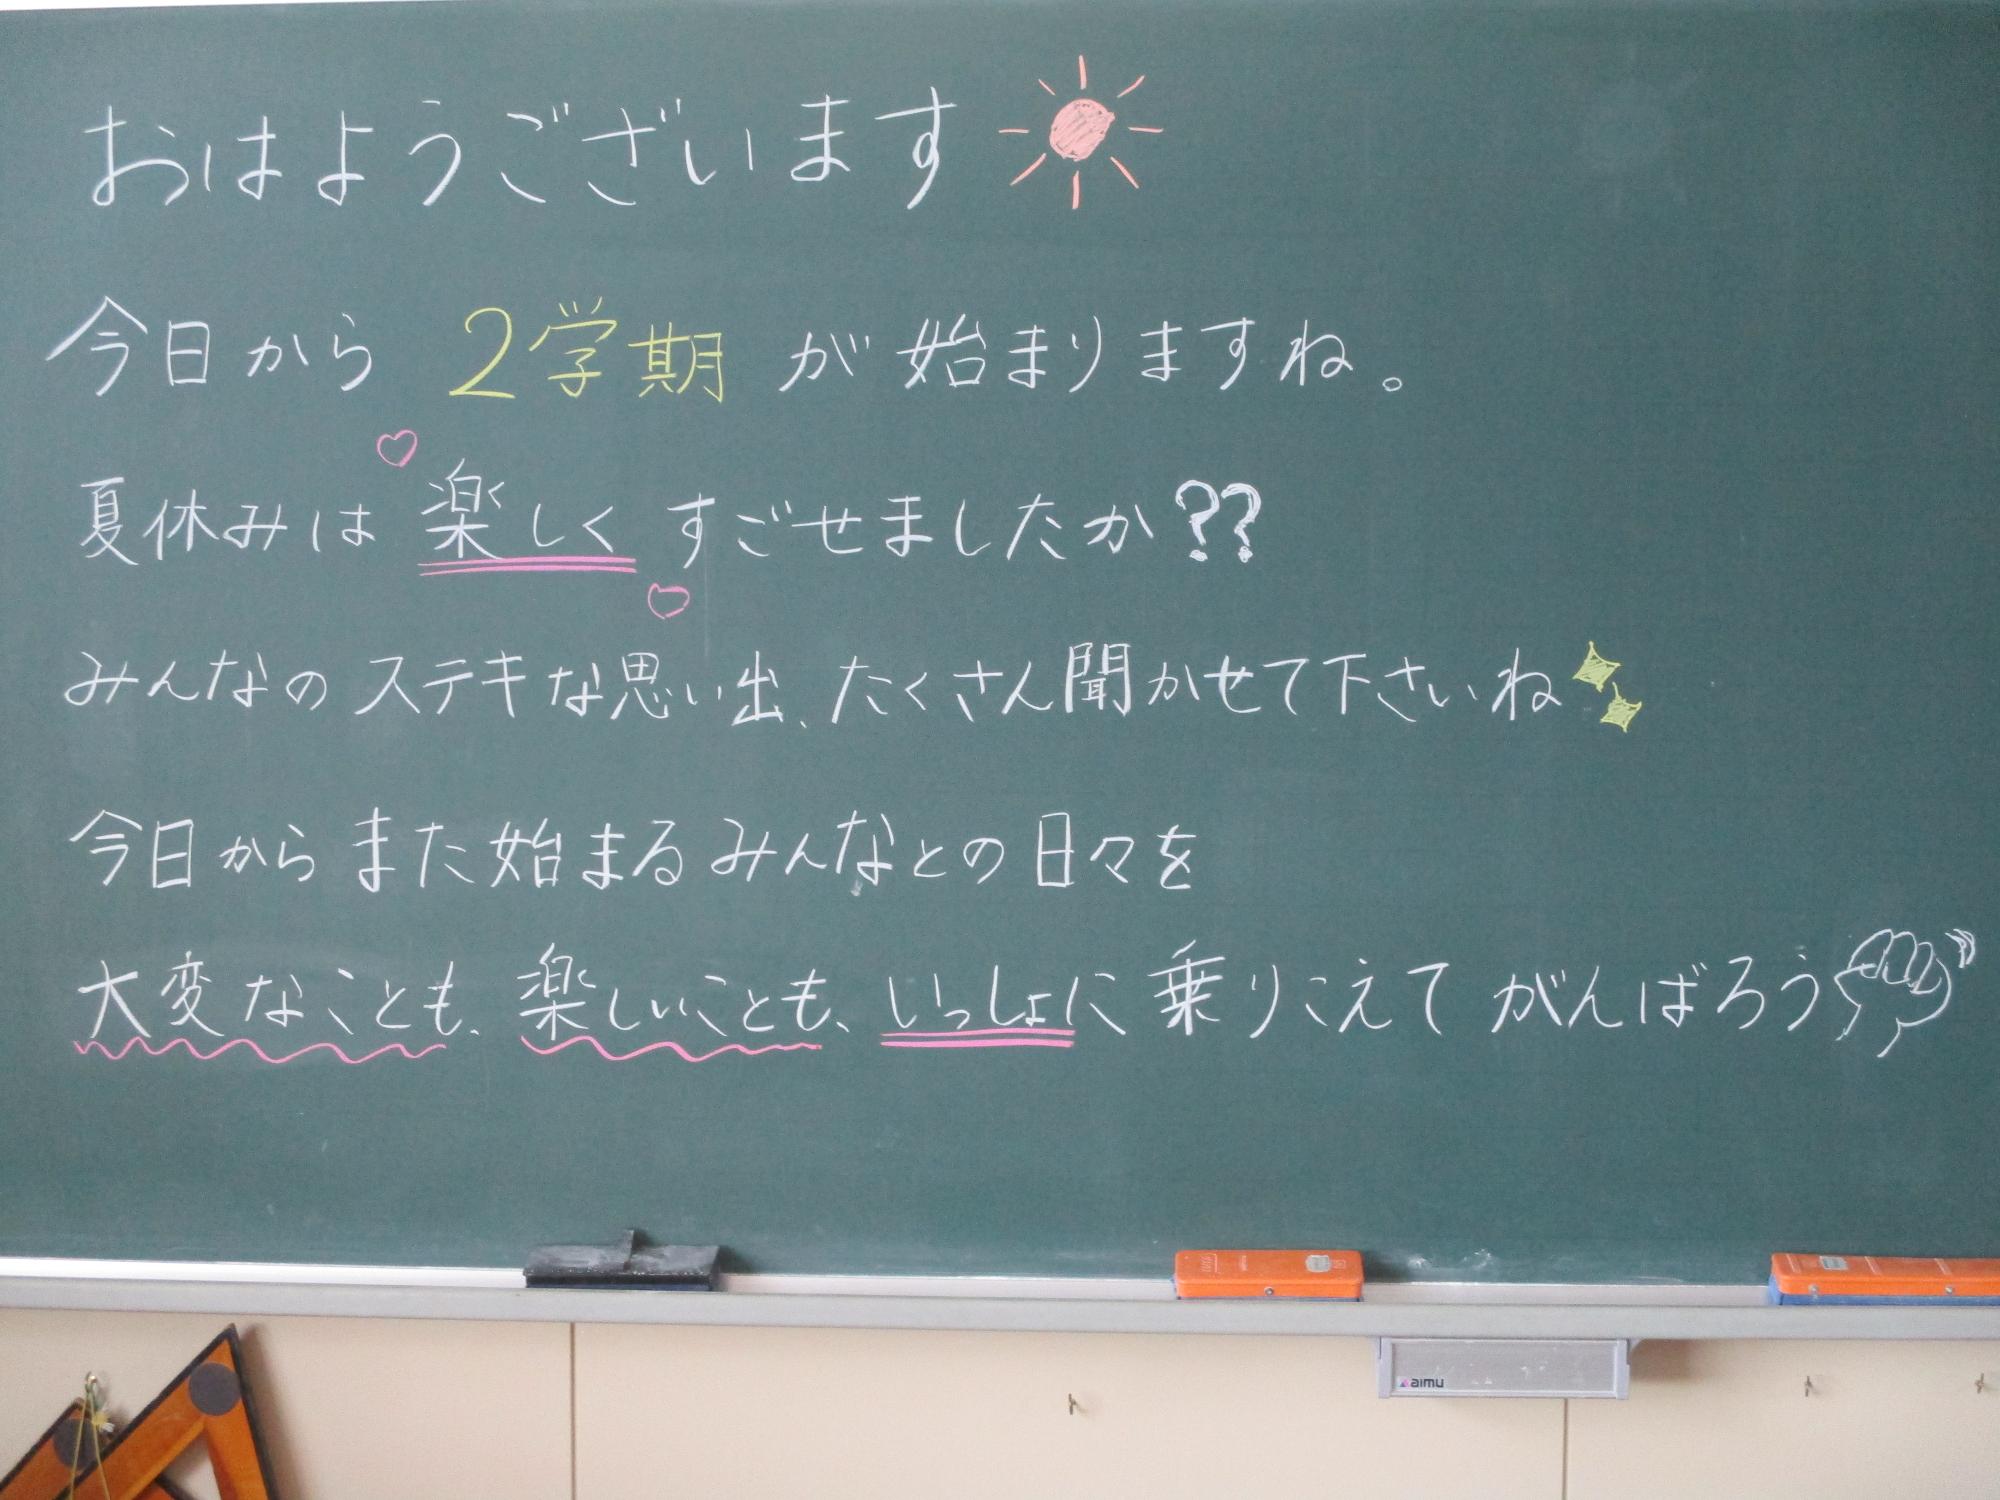 おはようございます
今日から 2学期 が 始まりますね。
夏休みは 楽しく すごせましたか??
みんなの ステキな 思い出、たくさん 聞かせて 下さいね
今日から また 始まる みんなとの 日々を
大変なことも、楽しいことも、いっしょに 乗りこえて がんばろう
aimu